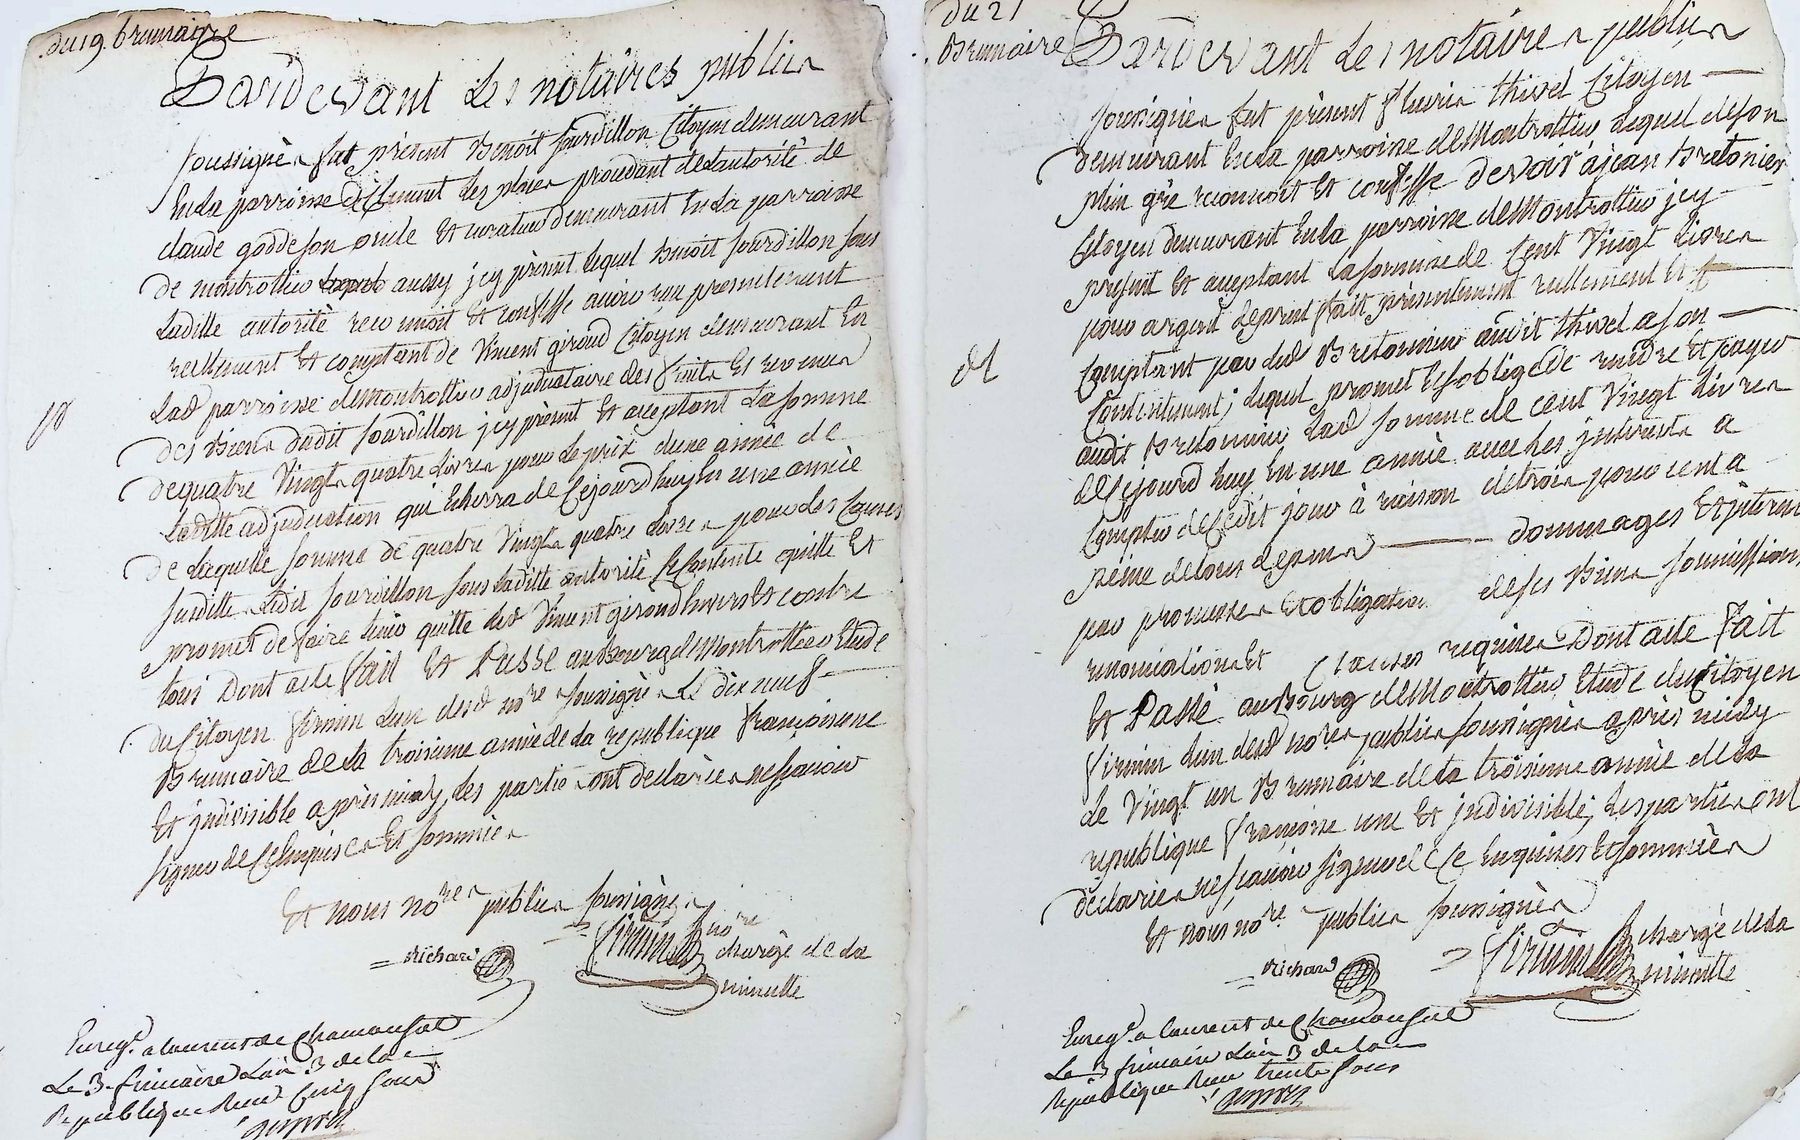 du 19 brumaire
Pardevant Les notaires publics
soussignés fut présent Benoit Jourdillon Citoyen demeurant
En la parroisse de Clement les places procedant de L'autorité de
claude godde son oncle Et curateur demeurant En La parroisse
de montrottier aussy jcy présent Lequel Benoit Jourdillon sous
Laditte autorité reconnoit Et confesse avoir reçu presentement
reellement Et comptant de Vincent giroud Citoyen demeurant En
Lad parroisse de Montrottier adjudicataire des fruits Et revenus
des Biens dudit Jourdillon jcy présent Et acceptant La somme
de quatre Vingts quatre Livres pour Le prix d'une année de
Laditte adjudication qui Echerra de Ce jourd'huy En une année
de Laquelle somme de quatre Vingts quatre Livres pour les Causes
susdittes Ledit Jourdillon sous Laditte autorité Se Contente quitte Et
promet de faire tenir quitte led Vincent giroud Envers Et contre
tous Dont acte fait Et Passé au Bourg de Montrottier Etude
du Citoyen firmin L'un desd nores soussignés Le dix neuf
Brumaire de la troisieme année de La republique françoise une
Et jndivisible après midy, les parties ont déclarées ne sçavoir
signer de Ce Enquises Et sommées
Et nous nores publics soussignés
Richard
firmin nore
chargé de la
minutte
Enregé a laurent de Chamousset
Le 3 frimaire L'an 3 de la
Republique Reçu Cinq sous
du 21
Brumaire
Pardevant Les notaires publics
soussignés fut présent fleurie thivel Citoyen
demeurant En La parroisse de Montrottier Lequel de son
plein gré reconnoit Et confesse devoir à jean Bretonier
Citoyen demeurant En la parroisse de Montrottier jcy
présent Et acceptant La somme de Cent Vingt Livres
pour argent de prest fait présentement reellement Et
Comptant par led Bretonnier audit thivel a son
Contentement; Lequel promet Et s'oblige de rendre Et payer
audit Bretonnier Lad somme de cent Vingt Livres
de Ce jourd'huy En une année avec Les jnterests a
Compter de Cedit jour à raison de trois pour cent a
peine de tous depens dommages Et jnterests
par promesses Et obligation de ses Biens soumissions
renonciations Et Clauses requises Dont acte fait
Et Passé au Bourg de Montrottier Etude du Citoyen
firmin L'un desd nores publics soussignés après midy
Le Vingt un Brumaire de La troisieme année de La
republique françoise une Et jndivisible, Les parties ont
déclarées ne sçavoir signer de Ce Enquises Et sommées
Et nous nores publics soussignés
Richard
firmin chargé de La
minutte
Enregé a laurent de Chamousset
Le 3 frimaire L'an 3 de la
Republique Reçu trente sous